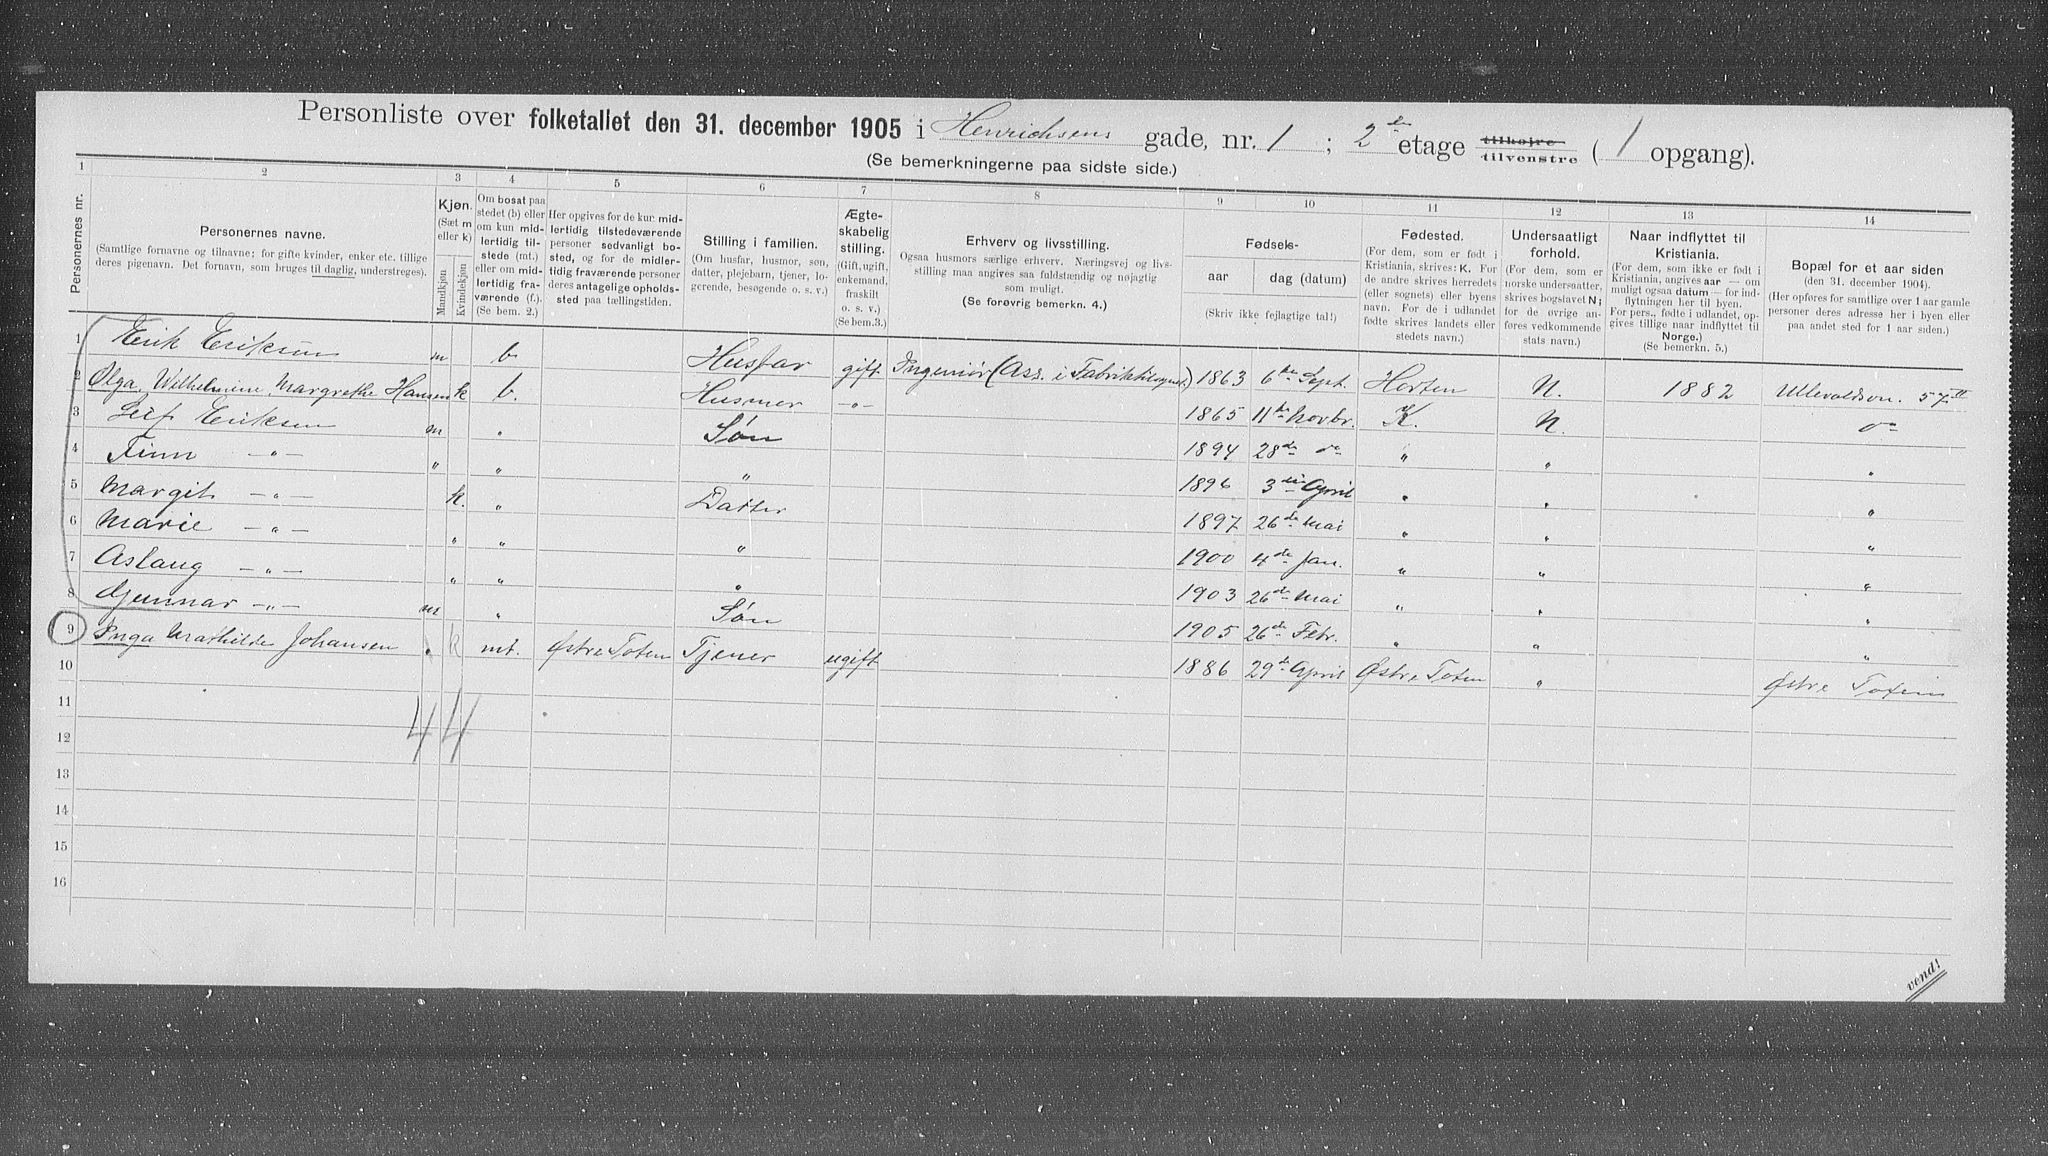 Personliste over folketallet den 31. december 1905 i Henrichsens gade, nr. 1 ; 2den etage tilhøjre tilvenstre ( 1 opgang).
(Se bemerkningerne paa sidste side.)
1 2 3 4 5 6 7 8 9 10 11 12 13 14
Personernes nr.
Personernes navne.
(Samtlige fornavne og tilnavne; for gifte kvinder, enker etc. tillige
deres pigenavn. Det fornavn, som bruges til daglig, understreges).
Kjøn.
(Sæt m
eller k)
Mandkjøn
Kvindekjøn
Om bosat paa
stedet (b) eller
om kun mid-
lertidig til-
stede (mt.)
eller om mid-
lertidig fra-
værende (f.).
(Se bem. 2.)
Her opgives for de kun mid-
lertidig tilstedeværende
personer sedvanlig bo-
sted, og for de midler-
tidig fraværende personer
deres antagelige opholds-
sted paa tællingstiden.
Stilling i familien.
(Om husfar, husmor, søn,
datter, plejebarn, tjener, lo-
gerende, besøgende o. s. v.)
Ægte-
skabelig
stilling.
(Gift, ugift,
enkemand,
fraskilt
o. s. v.)
(Se bem.3.)
Erhverv og livsstilling.
Ogsaa husmors særlige erhverv. Næringsvej og livs-
stilling maa angives saa fuldstændig og nøjagtig
som muligt.
(Se forøvrig bemerkn. 4.)
Fødsels-
aar dag (datum)
(Skriv ikke fejlagtige tal!)
Fødested.
(For dem, som er født i
Kristiania, skrives: K. For
de andre skrives herredets
(eller sognets) eller byens
navn. For de i udlandet
fødte skrives landets eller
stedets navn.)
Undersaatligt
forhold.
(For dem, som er
norske undersaatter,
skrives bogstavet N;
for de øvrige an-
føres vedkommende
stats navn.)
Naar indflyttet til
Kristiania.
(For dem, som ikke er født i
Kristiania, angives aar — om
muligt ogsaa datum — for ind-
flytningen her til byen.
For pers., fødte i udlandet, op-
gives tillige naar indflyttet til
Norge.)
(Se bemerkn. 5.)
Bopæl for et aar siden
(den 31. december 1904).
(Her opføres for samtlige over 1 aar gamle
personer deres adresse her i byen eller
paa andet sted for 1 aar siden.)
1 Erik Eriksen m b. Husfar gift Ingeniør (Ass. i Fabriktilsynet) 1863 6te Sept. Horten N. 1882 Ullevoldsvn. 57II
2 Olga Wilhelmine Margrethe Hansen k b. Husmor -„- 1865 11te Novbr. K. N. do
3 Leif Eriksen m „ Søn 1894 28de do „ „ „
4 Finn -„- „ „ „ 1896 3die April „ „ „
5 Margit -„- k. „ Datter 1897 26de Mai „ „ „
6 Marie -„- „ „ „ 1900 4de Jan. „ „ „
7 Aslaug -„- „ „ „ 1903 26de Mai „ „ „
8 Gunnar -„- m „ Søn 1905 26de Febr. „ „ „
9 Inga Mathilde Johansen k mt. Østre Toten Tjener ugift 1886 29de April Østre Toten „ Østre Toten
10
11
44
12
13
14
15
16
vend!